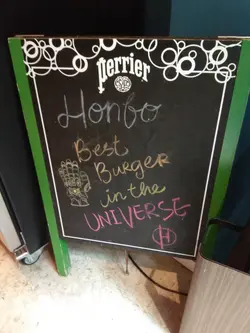 Perrier
Honbo
Best
Burger
in the
UNIVERSE
H